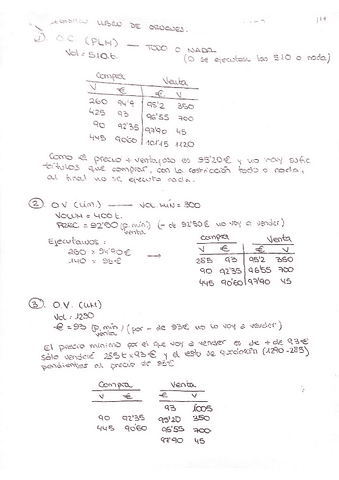 LIBRO DE ORDENES. 1/4
1) O.C. (PLM) — TODO O NADA
Vol = 510 t. (O se ejecutan las 510 o nada)
Compra Venta
V € € V
260 94'9 95'2 350
425 93 96'55 700
90 92'35 97'90 45
445 90'60 101'15 1120
Como el precio + ventajoso es 95'20€ y no hay sufic
títulos que comprar, con la restricción todo o nada,
al final no se ejecuta nada.
2) O.V (Lim.) — VOL MÍN = 300
VOLUM = 400 t.
PREC. = 92'50 (p. mín) (- de 92'50€ no voy a vender)
venta
Ejecutamos:
260 x 94'90€
140 x 93€
Compra Venta
V € € V
285 93 95'2 350
90 92'35 96'55 700
445 90'60 97'90 45
3) O.V. (LIM)
Vol = 1290
€ = 93 (p. mín / (por - de 93€ no lo voy a vender)
venta
El precio mínimo por el que voy a vender es de 93€
sólo venderé 285 t x 93€ y el resto se quedarán (1290-285)
pendientes al precio de 93€
Compra Venta
V € € V
93 1005
90 92'35 95'20 350
445 90'60 96'55 700
97'90 45